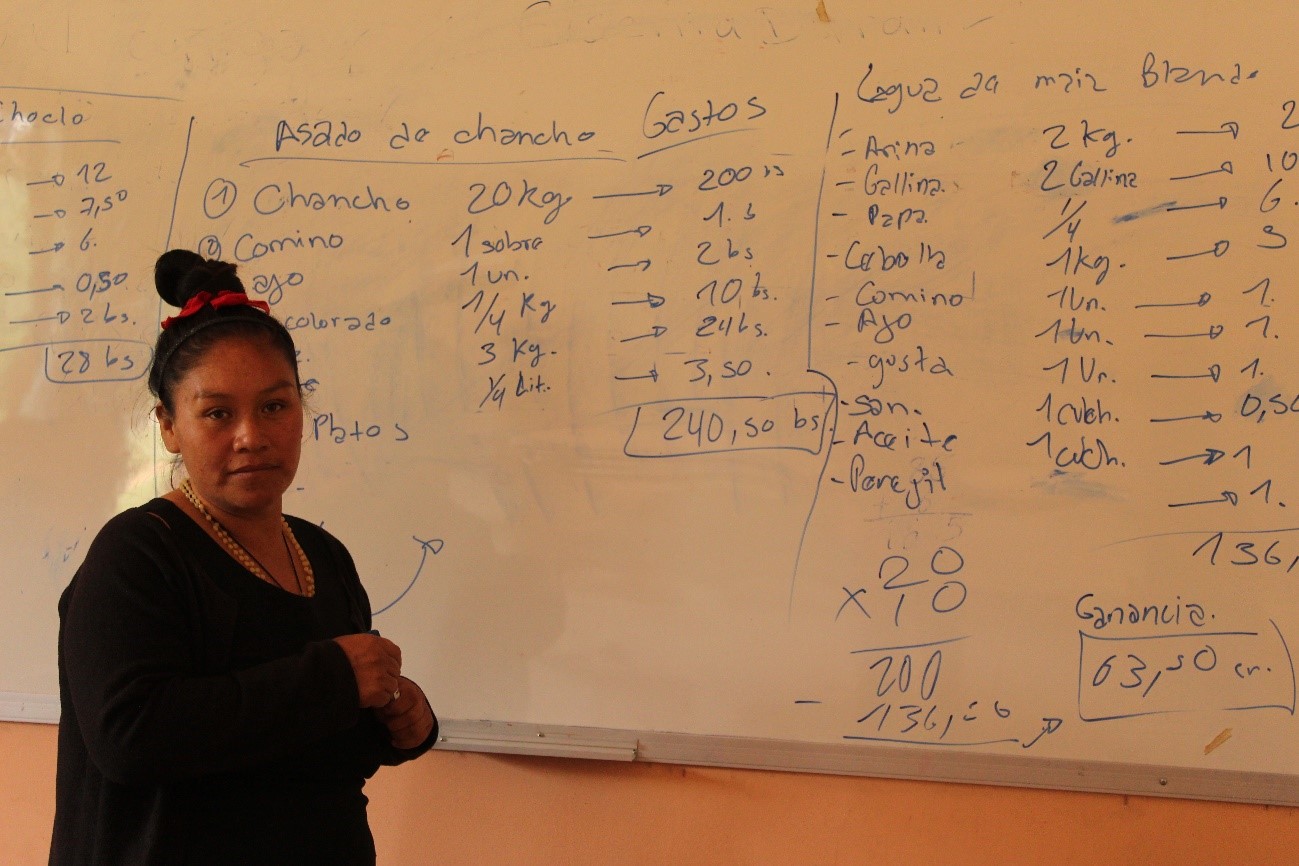 Choclo
→ 12
→ 7,50
→ 6.
→ 0,50
→ 2 bs.
28 bs
Asado de chancho Gastos
① Chancho. 20 kg → 200 bs
② Comino 1 sobre → 1. b
ajo 1 un. → 2 bs
colorado 1/4 Kg → 10, bs.
3 Kg. → 24 bs.
1/4 Lit. → 3,50.
240,50 bs.
Platos
Lagua de maiz Blando
- Arina 2 kg. → 2
- Gallina. 2 Gallina → 10
- Papa. 1/4 → 6.
- Cebolla 1 kg. → 3
- Comino 1 Un. → 1.
- Ajo 1 Un. → 1.
- gusta 1 Un. → 1.
- San. 1 cuch. → 0,50
- Aceite 1 cuch. → 1
- Parejil → 1.
136,
20
x 10
200
-
Ganancia.
63,50